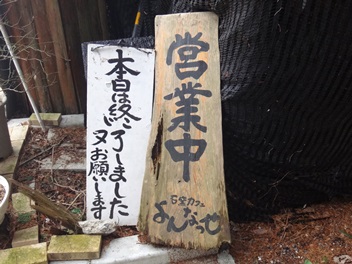 営業中
古空カフェ
よんなっせ
本日は終了しました
又お願いします